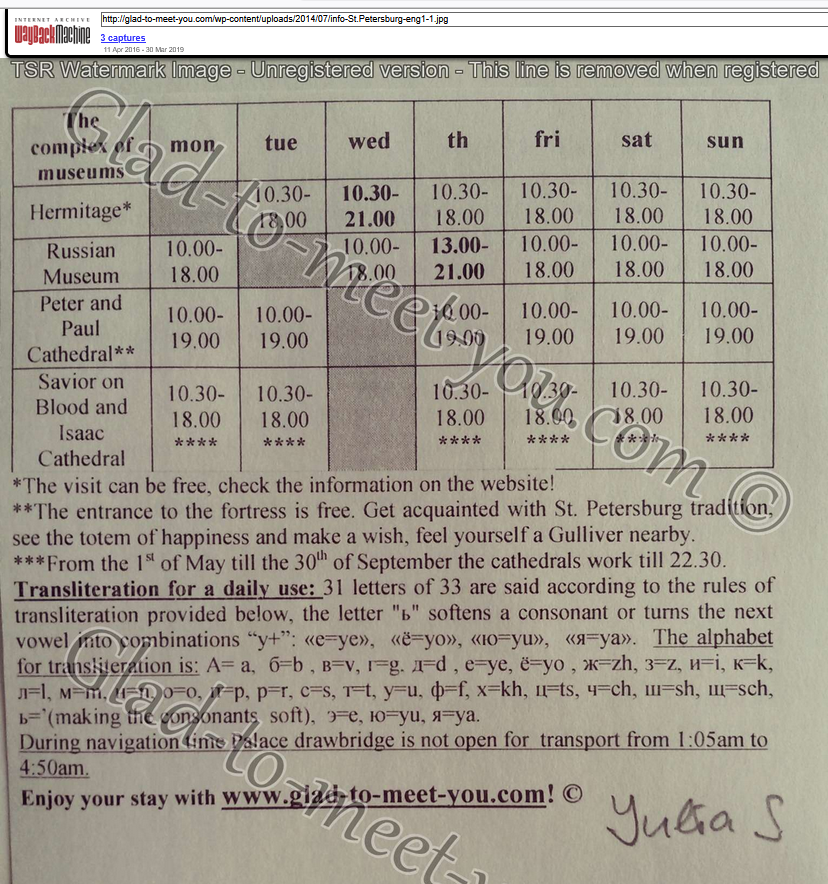 INTERNET ARCHIVE
WayBackMachine
http://glad-to-meet-you.com/wp-content/uploads/2014/07/info-St.Petersburg-eng1-1.jpg
3 captures
11 Apr 2016 - 30 Mar 2019
TSR Watermark Image - Unregistered version - This line is removed when registered
The complex of museums mon tue wed th fri sat sun
Hermitage* 10.30-18.00 10.30-21.00 10.30-18.00 10.30-18.00 10.30-18.00 10.30-18.00
Russian Museum 10.00-18.00 10.00-18.00 13.00-21.00 10.00-18.00 10.00-18.00 10.00-18.00
Peter and Paul Cathedral** 10.00-19.00 10.00-19.00 10.00-19.00 10.00-19.00 10.00-19.00 10.00-19.00
Savior on Blood and Isaac Cathedral 10.30-18.00 **** 10.30-18.00 **** 10.30-18.00 **** 10.30-18.00 **** 10.30-18.00 **** 10.30-18.00 ****
*The visit can be free, check the information on the website!
**The entrance to the fortress is free. Get acquainted with St. Petersburg tradition,
see the totem of happiness and make a wish, feel yourself a Gulliver nearby.
***From the 1st of May till the 30th of September the cathedrals work till 22.30.
Transliteration for a daily use: 31 letters of 33 are said according to the rules of
transliteration provided below, the letter "ь" softens a consonant or turns the next
vowel into combinations “y+”: «e=ye», «ё=yo», «ю=yu», «я=ya». The alphabet
for transliteration is: А= a, б=b , в=v, г=g, д=d , e=ye, ё=yo , ж=zh, з=z, и=i, к=k,
л=l, м=m, н=n, о=o, п=p, р=r, с=s, т=t, у=u, ф=f, х=kh, ц=ts, ч=ch, ш=sh, щ=sch,
ь=`(making the consonants soft), э=e, ю=yu, я=ya.
During navigation time Palace drawbridge is not open for transport from 1:05am to
4:50am.
Enjoy your stay with www.glad-to-meet-you.com! ©
Yulia S
Glad-to-meet-you.com ©
Glad-to-meet-y